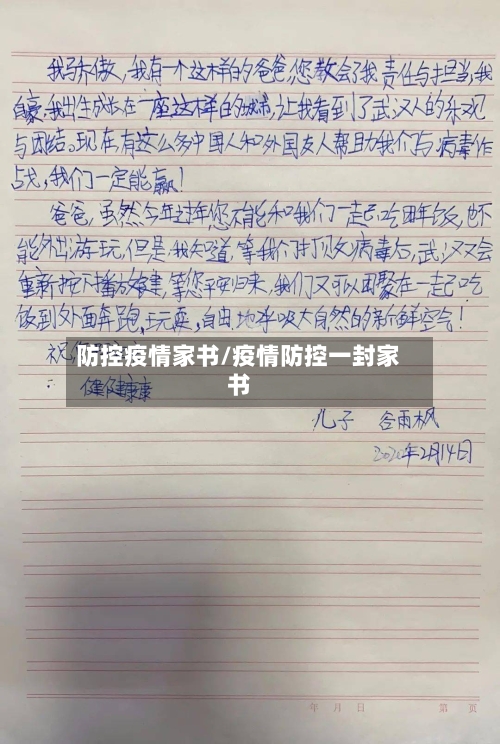 我骄傲,我有一个这样的爸爸,您教会了我责任与担当,我
自豪,我出生成长在一座这样的城市,让我看到了武汉人的乐观
与团结。现在,有这么多中国人和外国友人帮助我们与病毒作
战,我们一定能赢!
爸爸,虽然今年过年您不能和我们一起吃团年饭,也不
能外出游玩,但是,我知道,等我们打败病毒后,武汉又会
重新按下播放键,等您平安归来,我们又可以团聚在一起吃
饭到外面奔跑,玩耍,自由地呼吸大自然的新鲜空气!
祝
防控疫情家书/疫情防控一封家
书
健健康康
儿子 谷雨枫
2020年2月14日
年 月 日 第 页